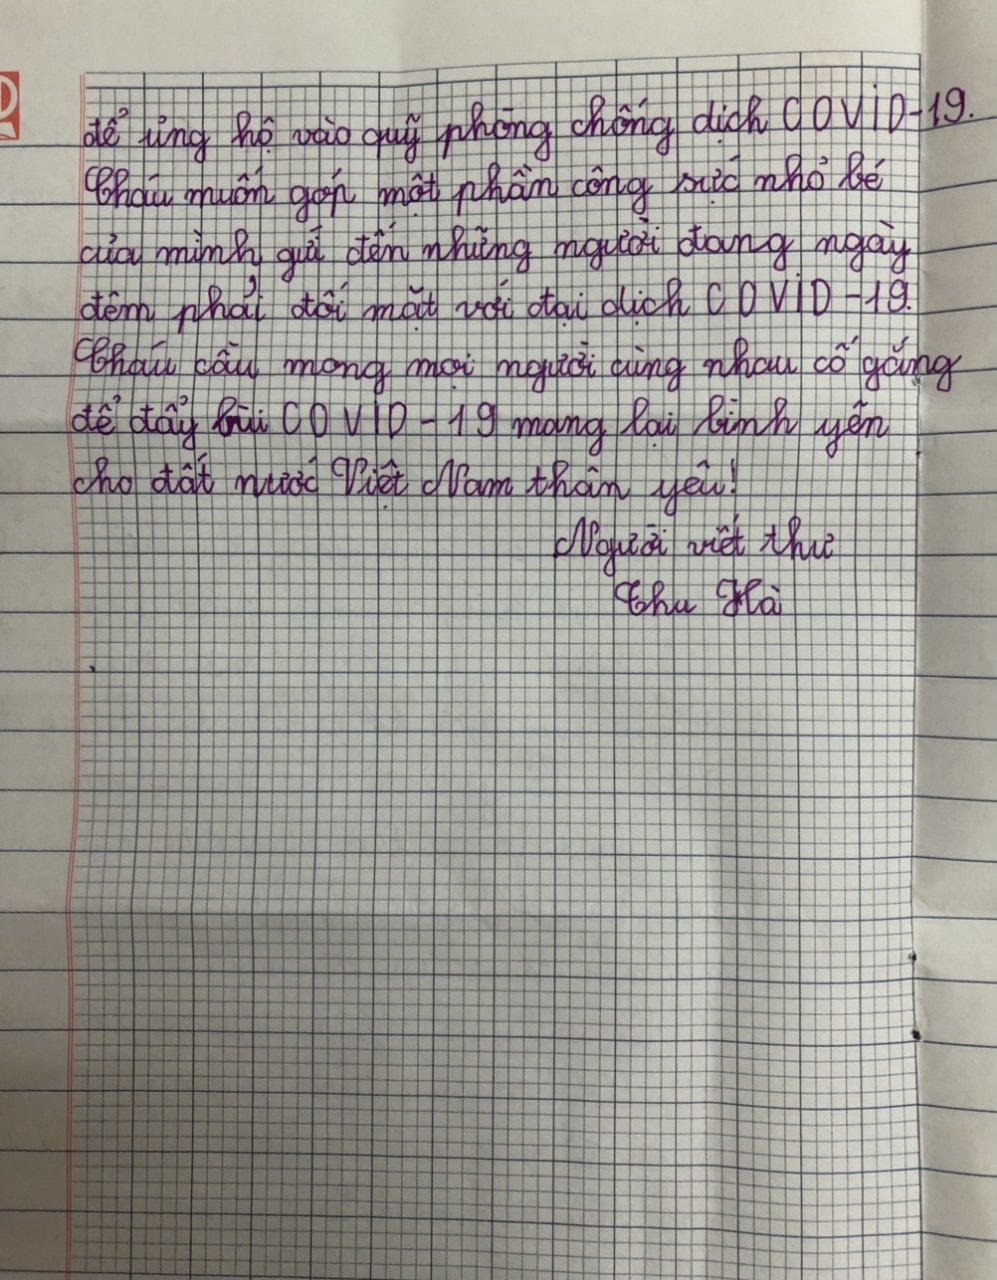 để ủng hộ vào quỹ phòng chống dịch COVID-19.
Cháu muốn góp một phần công sức nhỏ bé
của mình gửi đến những người đang ngày
đêm phải đối mặt với đại dịch COVID-19.
Cháu cầu mong mọi người cùng nhau cố gắng
để đẩy lùi COVID-19 mang lại bình yên
cho đất nước Việt Nam thân yêu!
Người viết thư
Thu Hà